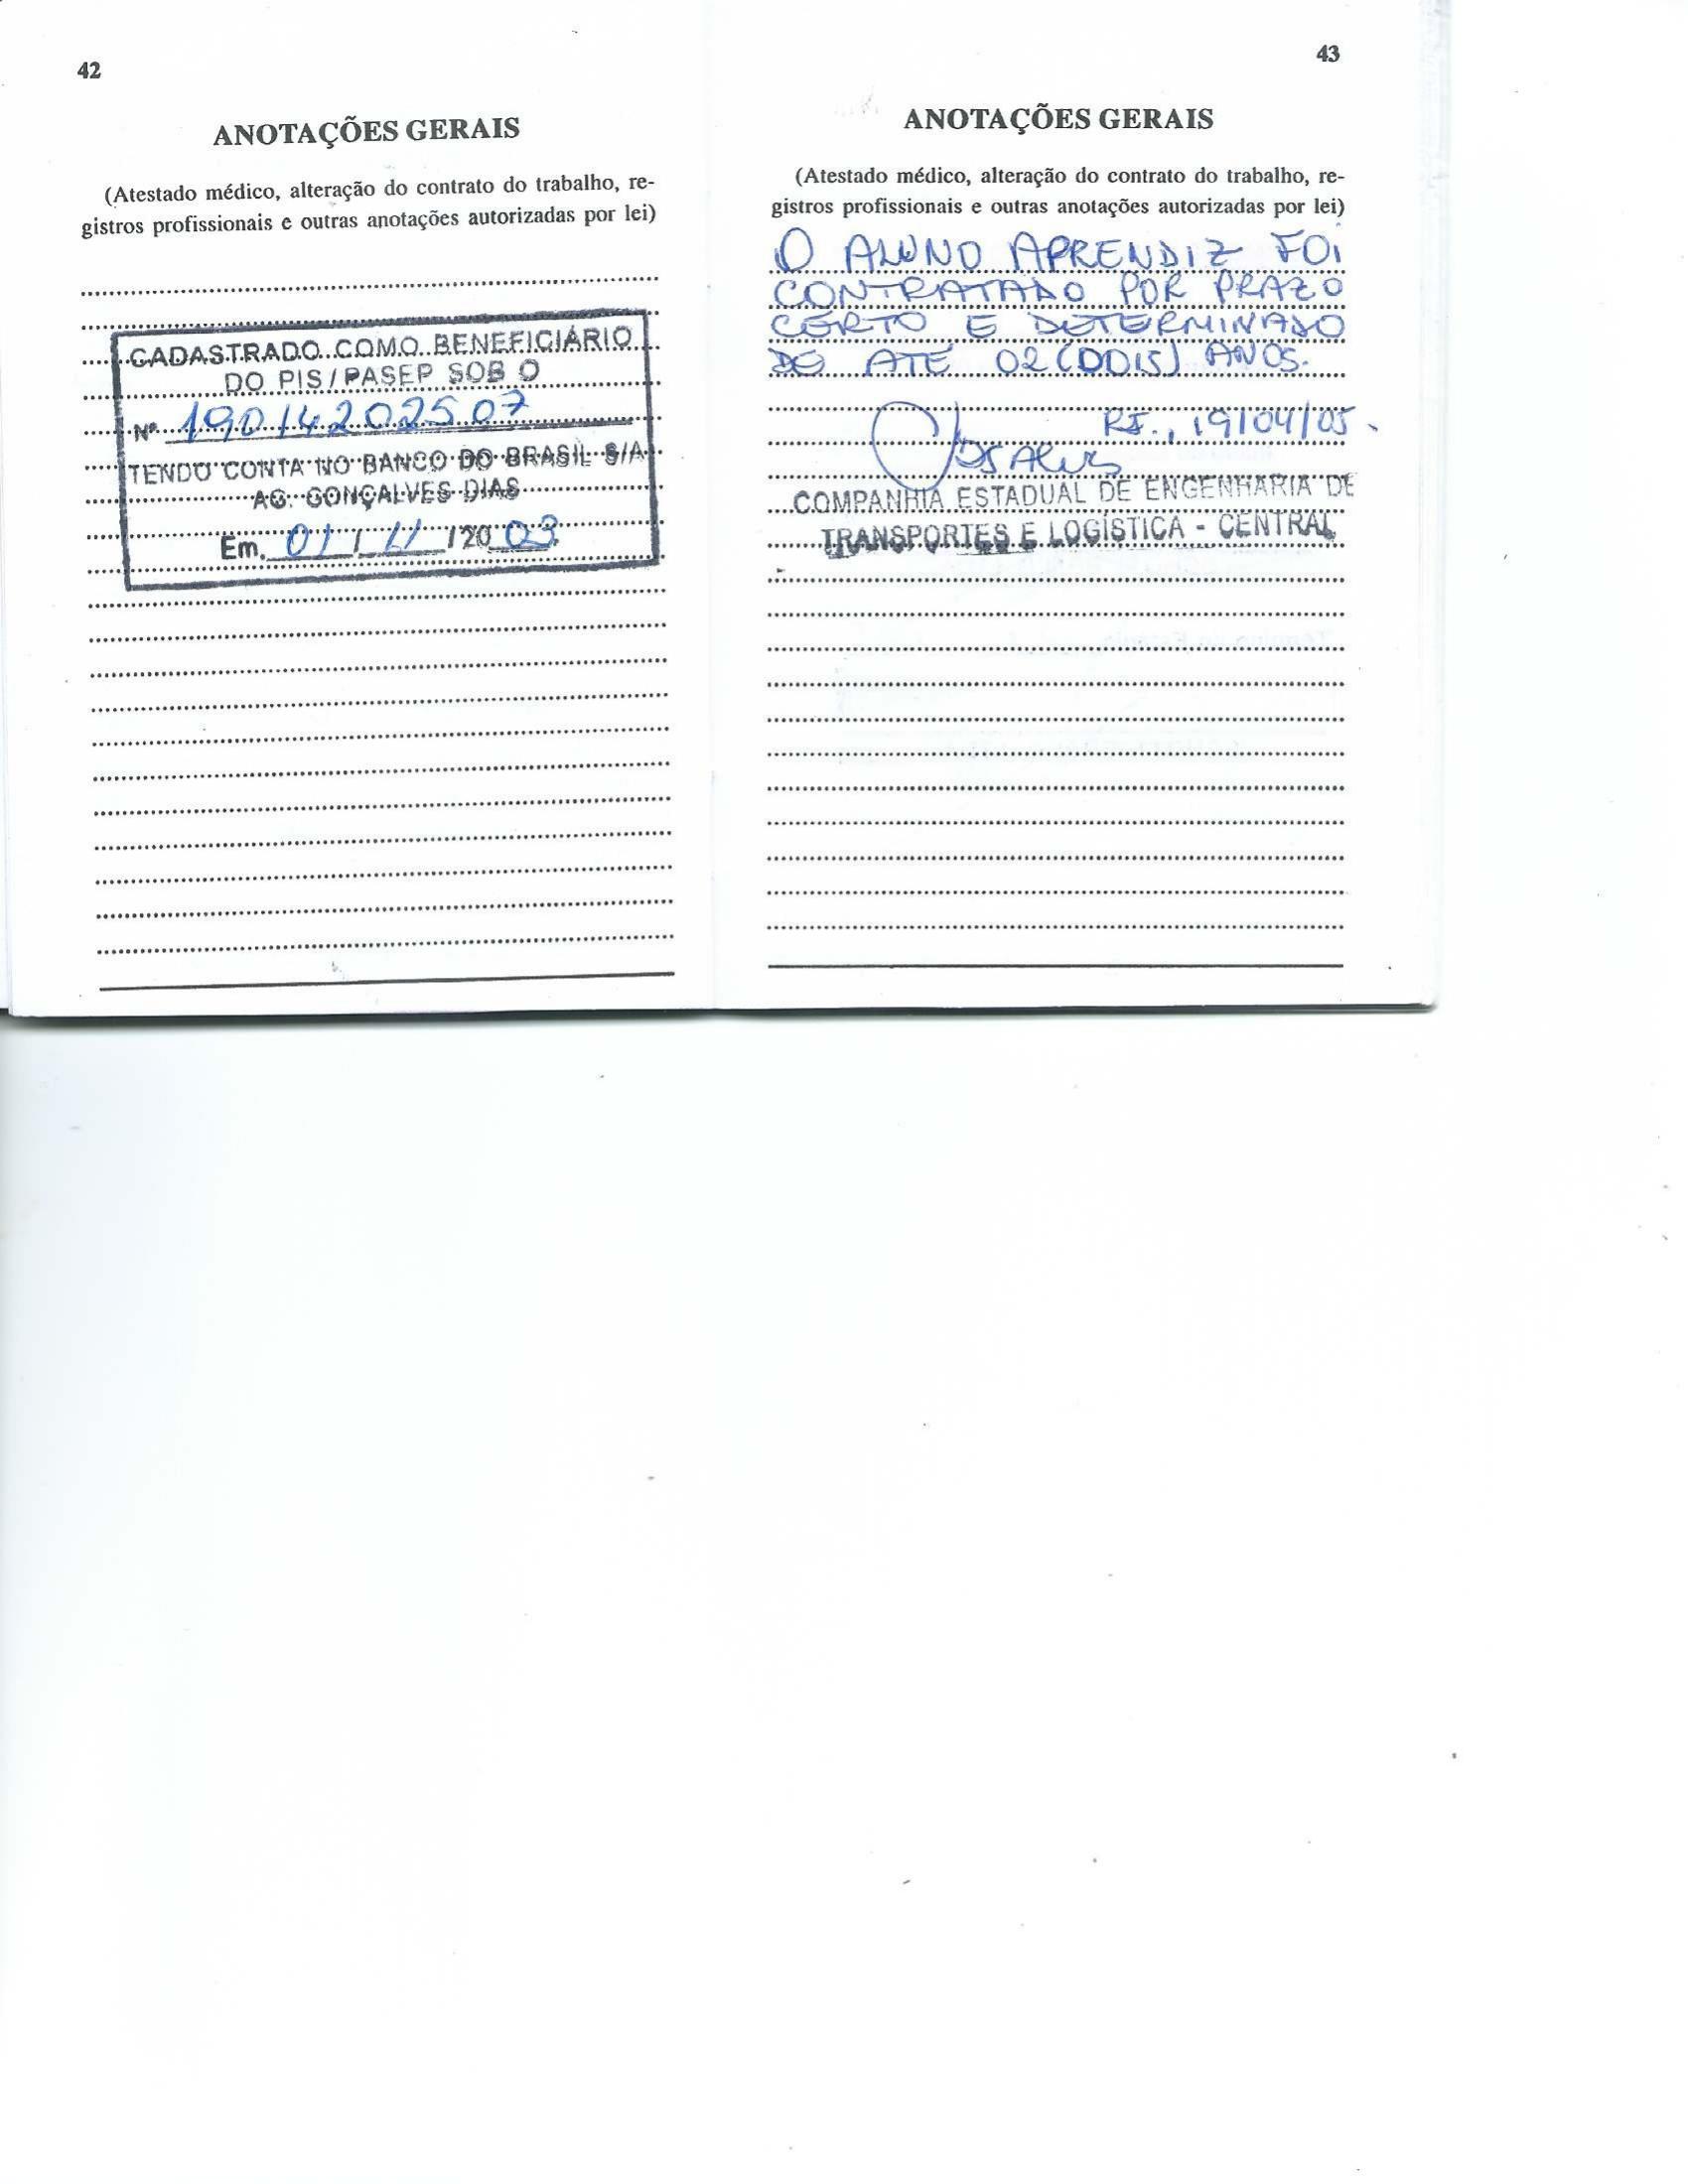 42
ANOTAÇÕES GERAIS
(Atestado médico, alteração do contrato do trabalho, re-
gistros profissionais e outras anotações autorizadas por lei)
CADASTRADO COMO BENEFICIÁRIO
DO PIS/PASEP SOB O
Nº 19014202507
TENDO CONTA NO BANCO DO BRASIL S/A
AG. GONÇALVES DIAS
Em, 01 / 11 /20 03
43
ANOTAÇÕES GERAIS
(Atestado médico, alteração do contrato do trabalho, re-
gistros profissionais e outras anotações autorizadas por lei)
O ALUNO APRENDIZ FOI
CONTRATADO POR PRAZO
CERTO E DETERMINADO
DE ATÉ 02 (DOIS) ANOS.
RJ., 19/04/05.
COMPANHIA ESTADUAL DE ENGENHARIA DE
TRANSPORTES E LOGÍSTICA - CENTRAL